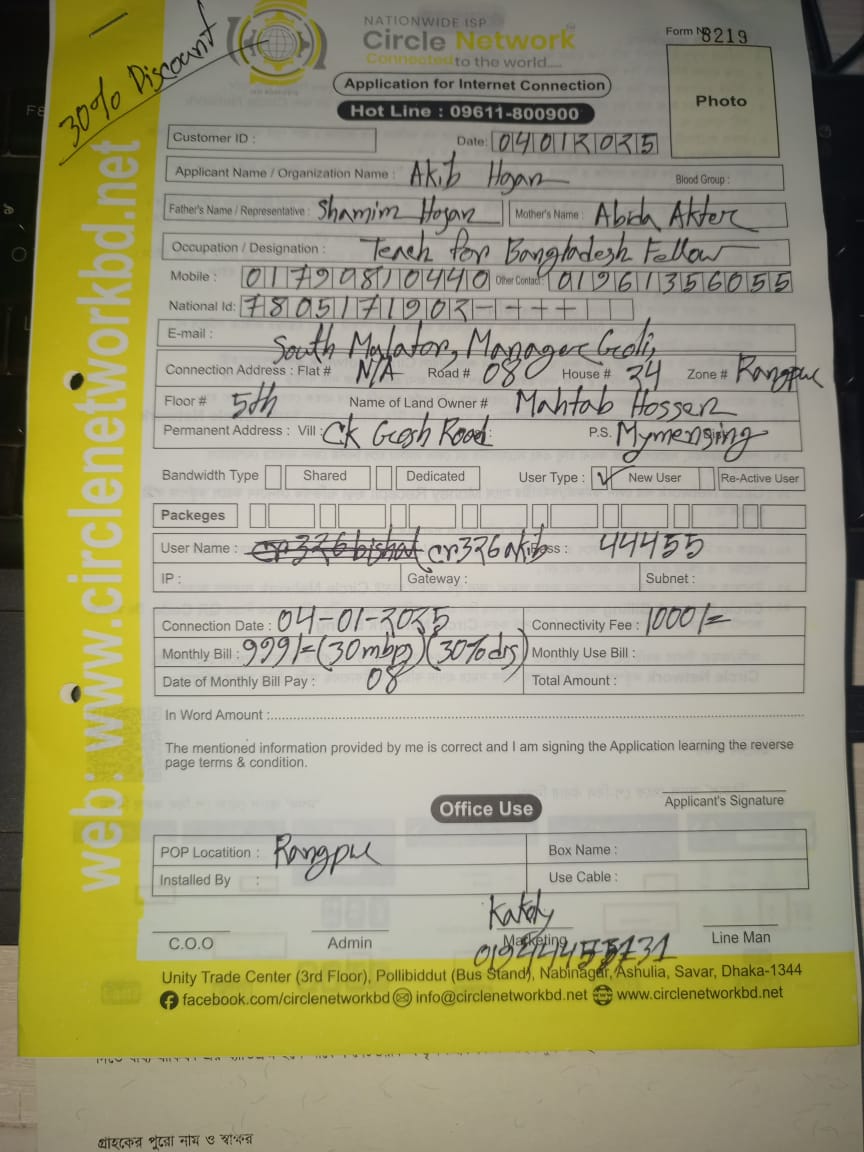 30% Discount
NATIONWIDE ISP
Circle Network
Connected to the world.....
Form № 8219
Application for Internet Connection
Hot Line : 09611-800900
Photo
web: www.circlenetworkbd.net
Customer ID :
Date: 04012025
Applicant Name / Organization Name : Akib Hogan Blood Group :
Father's Name / Representative : Shamim Hogan Mother's Name : Abida Akter
Occupation / Designation : Teach for Bangladesh Fellow
Mobile : 01790810440 Other Contact : 01961356055
National Id: 7805171902
E-mail :
South Mulaton, Manager Goli,
Connection Address : Flat # N/A Road # 08 House # 34 Zone # Rangpur
Floor # 5th Name of Land Owner # Mahtab Hossen
Permanent Address : Vill : Ck Gosh Road P.S. Mymensing
Bandwidth Type Shared Dedicated User Type : ✓ New User Re-Active User
Packeges
User Name : cr326bishat cr326akib Pass : 44455
IP : Gateway : Subnet :
Connection Date : 04-01-2025 Connectivity Fee : 1000/=
Monthly Bill : 999/= (30mbps) (30% dis) Monthly Use Bill :
Date of Monthly Bill Pay : 08 Total Amount :
In Word Amount :
The mentioned information provided by me is correct and I am signing the Application learning the reverse
page terms & condition.
Applicant's Signature
Office Use
POP Locatition : Rangpur Box Name :
Installed By : Use Cable :
C.O.O Admin Marketing Line Man
Unity Trade Center (3rd Floor), Pollibiddut (Bus Stand), Nabinagar, Ashulia, Savar, Dhaka-1344
facebook.com/circlenetworkbd info@circlenetworkbd.net www.circlenetworkbd.net
গ্রাহকের পুরো নাম ও স্বাক্ষর